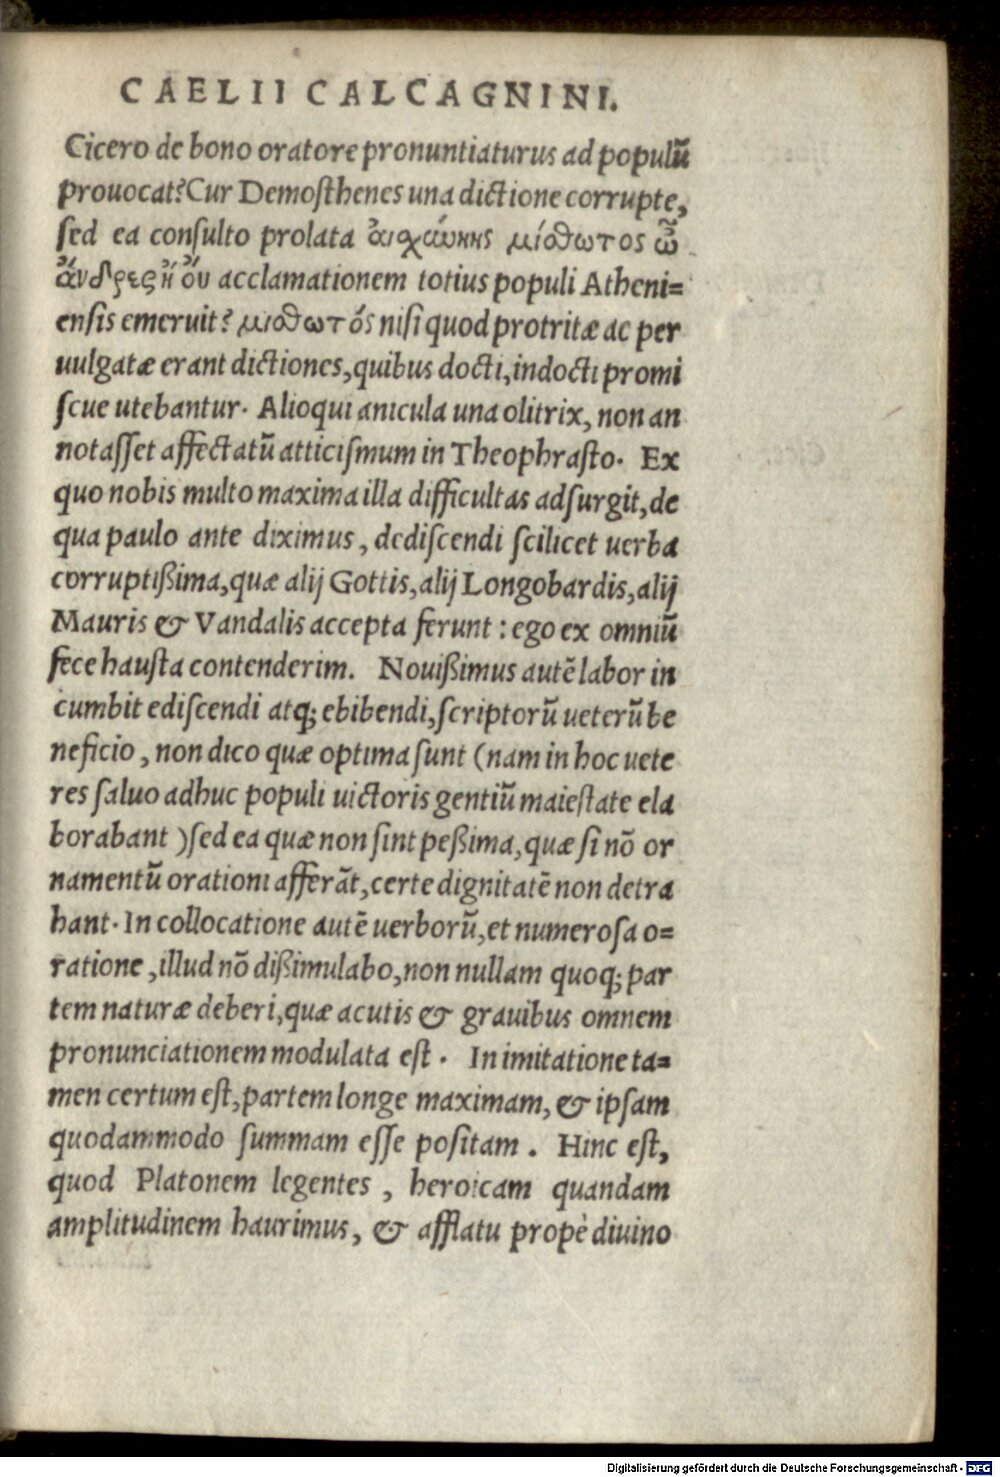 CAELII CALCAGNINI.
Cicero de bono oratore pronuntiaturus ad populũ
prouocat? Cur Demosthenes una dictione corrupte,
sed ea consulto prolata ἀιχάυκης μίσθωτος ὦ
ἄνδρες ἢ ὄυ acclamationem totius populi Atheni=
ensis emeruit? μισθωτός nisi quod protritæ ac per
uulgatæ erant dictiones, quibus docti, indocti promi
scue utebantur. Alioqui anicula una olitrix, non an
notasset affectatũ atticismum in Theophrasto. Ex
quo nobis multo maxima illa difficultas adsurgit, de
qua paulo ante diximus, dediscendi scilicet uerba
corruptißima, quæ alij Gottis, alij Longobardis, alij
Mauris & Vandalis accepta ferunt: ego ex omniũ
fece hausta contenderim. Nouißimus autẽ labor in
cumbit ediscendi atq; ebibendi, scriptorũ ueterũ be
neficio, non dico quæ optima sunt (nam in hoc uete
res saluo adhuc populi uictoris gentiũ maiestate ela
borabant) sed ea quæ non sint peßima, quæ si nõ or
namentũ orationi afferãt, certe dignitatẽ non detra
hant. In collocatione autẽ uerborũ, et numerosa o=
ratione, illud nõ dißimulabo, non nullam quoq; par
tem naturæ deberi, quæ acutis & grauibus omnem
pronunciationem modulata est. In imitatione ta=
men certum est, partem longe maximam, & ipsam
quodammodo summam esse positam. Hinc est,
quod Platonem legentes, heroicam quandam
amplitudinem haurimus, & afflatu propè diuino
Digitalisierung gefördert durch die Deutsche Forschungsgemeinschaft - DFG